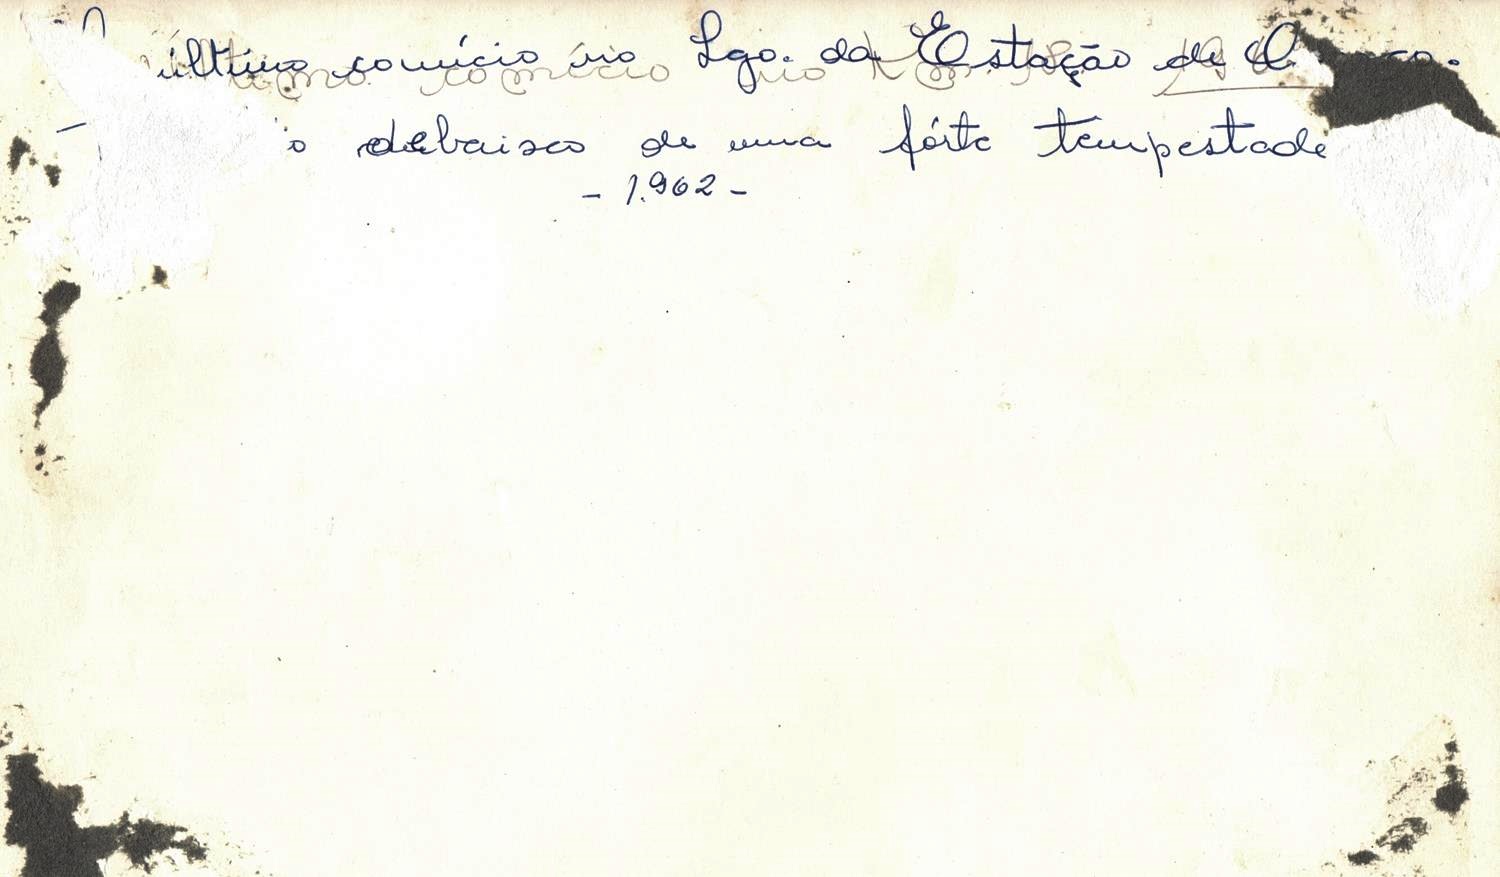 último comício no Lgo. da Estação de
debaixo de uma fórte tempestade
- 1.962 -